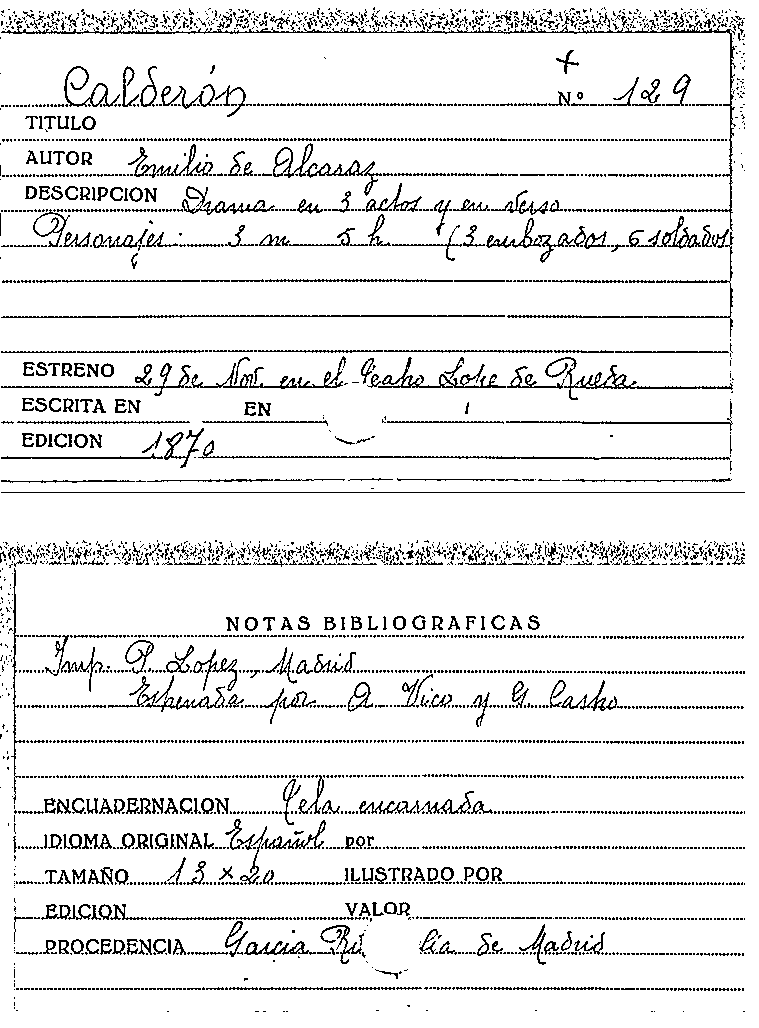 +
Calderón Nº 129
TITULO
AUTOR Emilio de Alcaraz
DESCRIPCION Drama en 3 actos y en verso
Personajes: 3 m 5 h (3 embozados, 6 soldados
ESTRENO 29 de Nov. en el Teatro Lope de Rueda
ESCRITA EN EN
EDICION 1870
NOTAS BIBLIOGRAFICAS
Imp. P. Lopez, Madrid
Estrenada por A Vico y G. Castro
ENCUADERNACION Tela encarnada
IDIOMA ORIGINAL Español por
TAMAÑO 13 x 20 ILUSTRADO POR
EDICION VALOR
PROCEDENCIA Garcia de Madrid